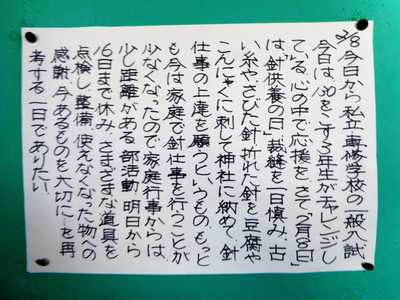 2/8 今日から私立専修学校の一般入試
今日は、30をこす3年生がチャレンジし
ている。心の中で応援を。さて2月8日」
は「針供養の日」裁縫を一日慎み、古
い糸やさびた針・折れた針を豆腐や
こんにゃくに刺して神社に納めて、針
仕事の上達を願うというもの。もっと
も今は家庭で針仕事を行うことが
少なくなったので家庭行事からは、
少し距離がある。部活動、明日から
16日まで休み、さまざまな道具を
点検し、整備、使えなくなった物への
感謝、今あるものを大切に…を再
考する一日でありたい。